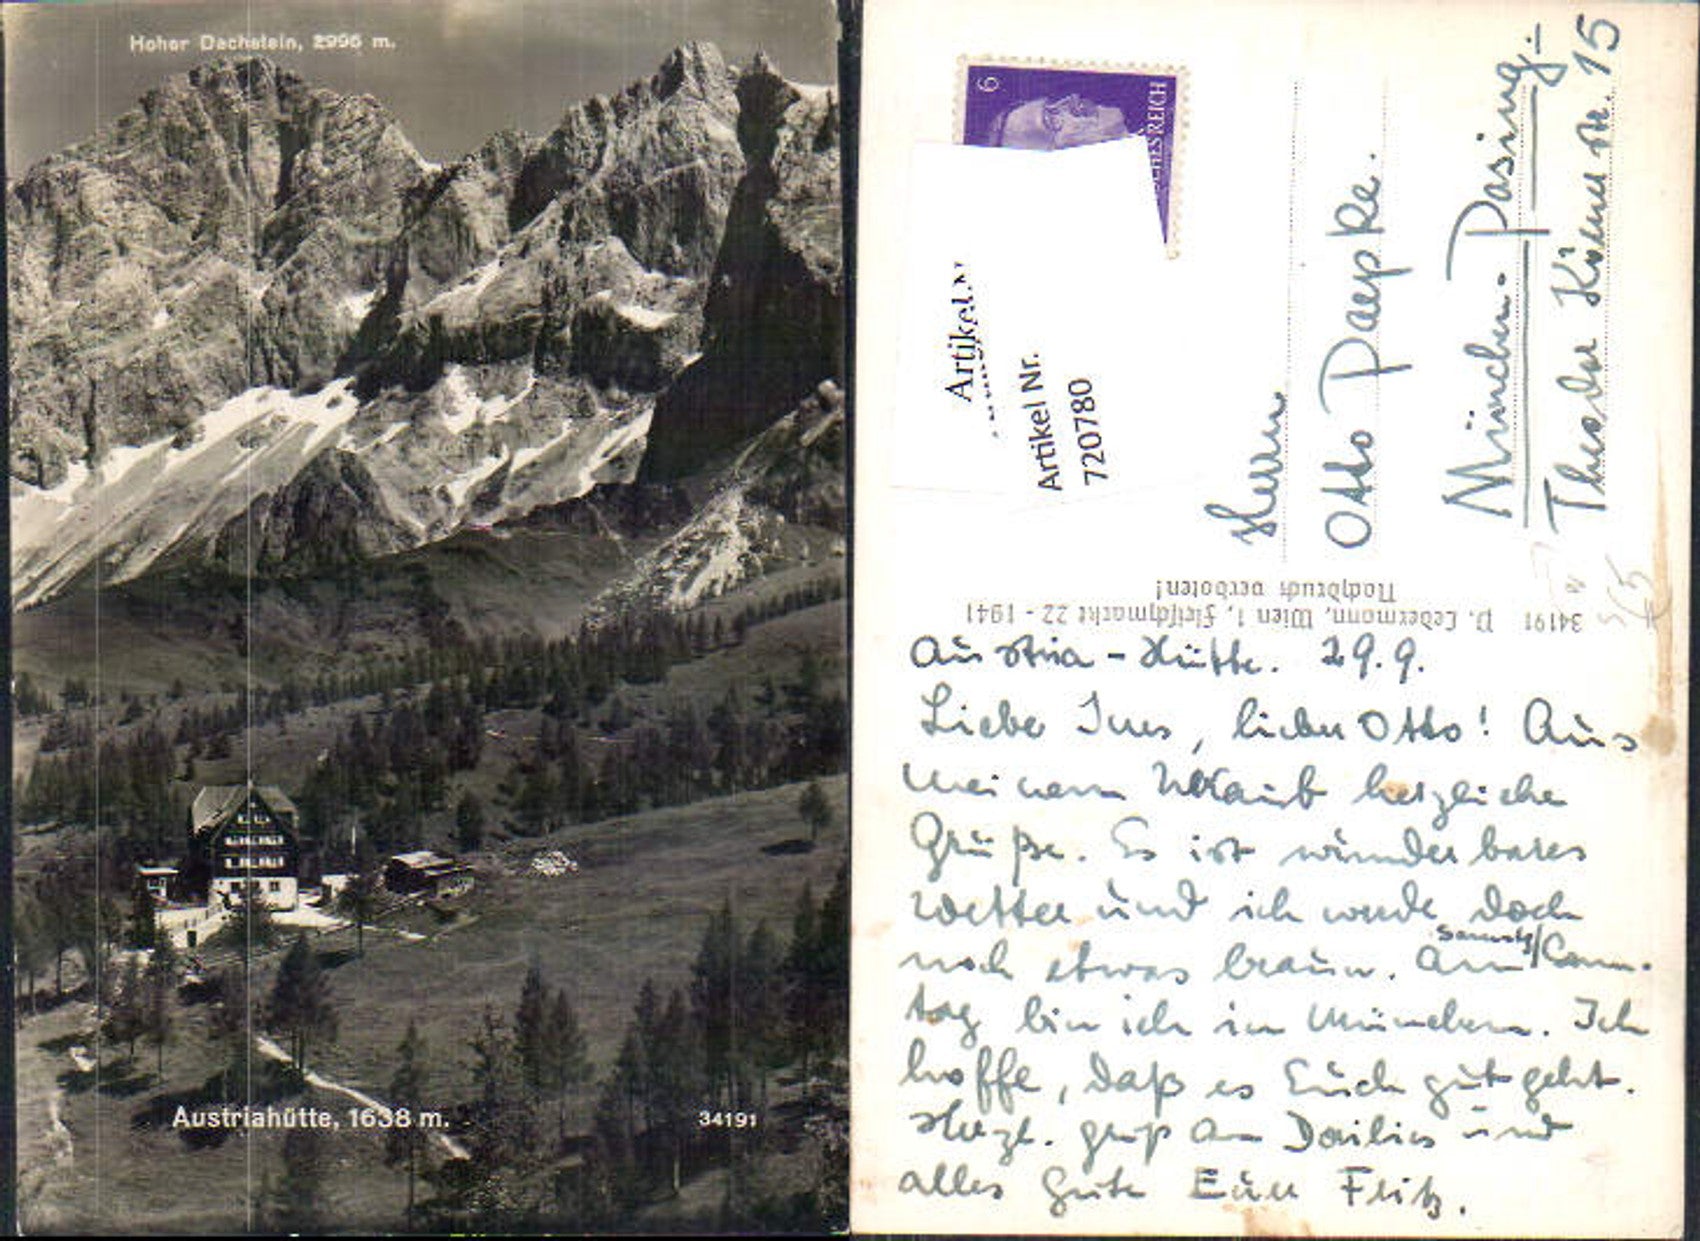 Hoher Dachstein, 2996 m.
Austriahütte, 1638 m.
34191
6
Artikel
Artikel Nr.
720780
Herrn
Otto Paepke.
München-Pasing.
Theodor Körner Str. 15
34191 P. Ledermann, Wien 1, Fleischmarkt 22 - 1941
Nachdruck verboten!
Austria-Hütte. 29.9.
Liebe Ines, lieber Otto! Aus
meinem Urlaub herzliche
Grüße. Es ist wunderbares
Wetter und ich werde doch
noch etwas braun. Am
tag bin ich in München. Ich
hoffe, daß es Euch gut geht.
Herzl. Gruß an und
alles Gute Euer Fritz.